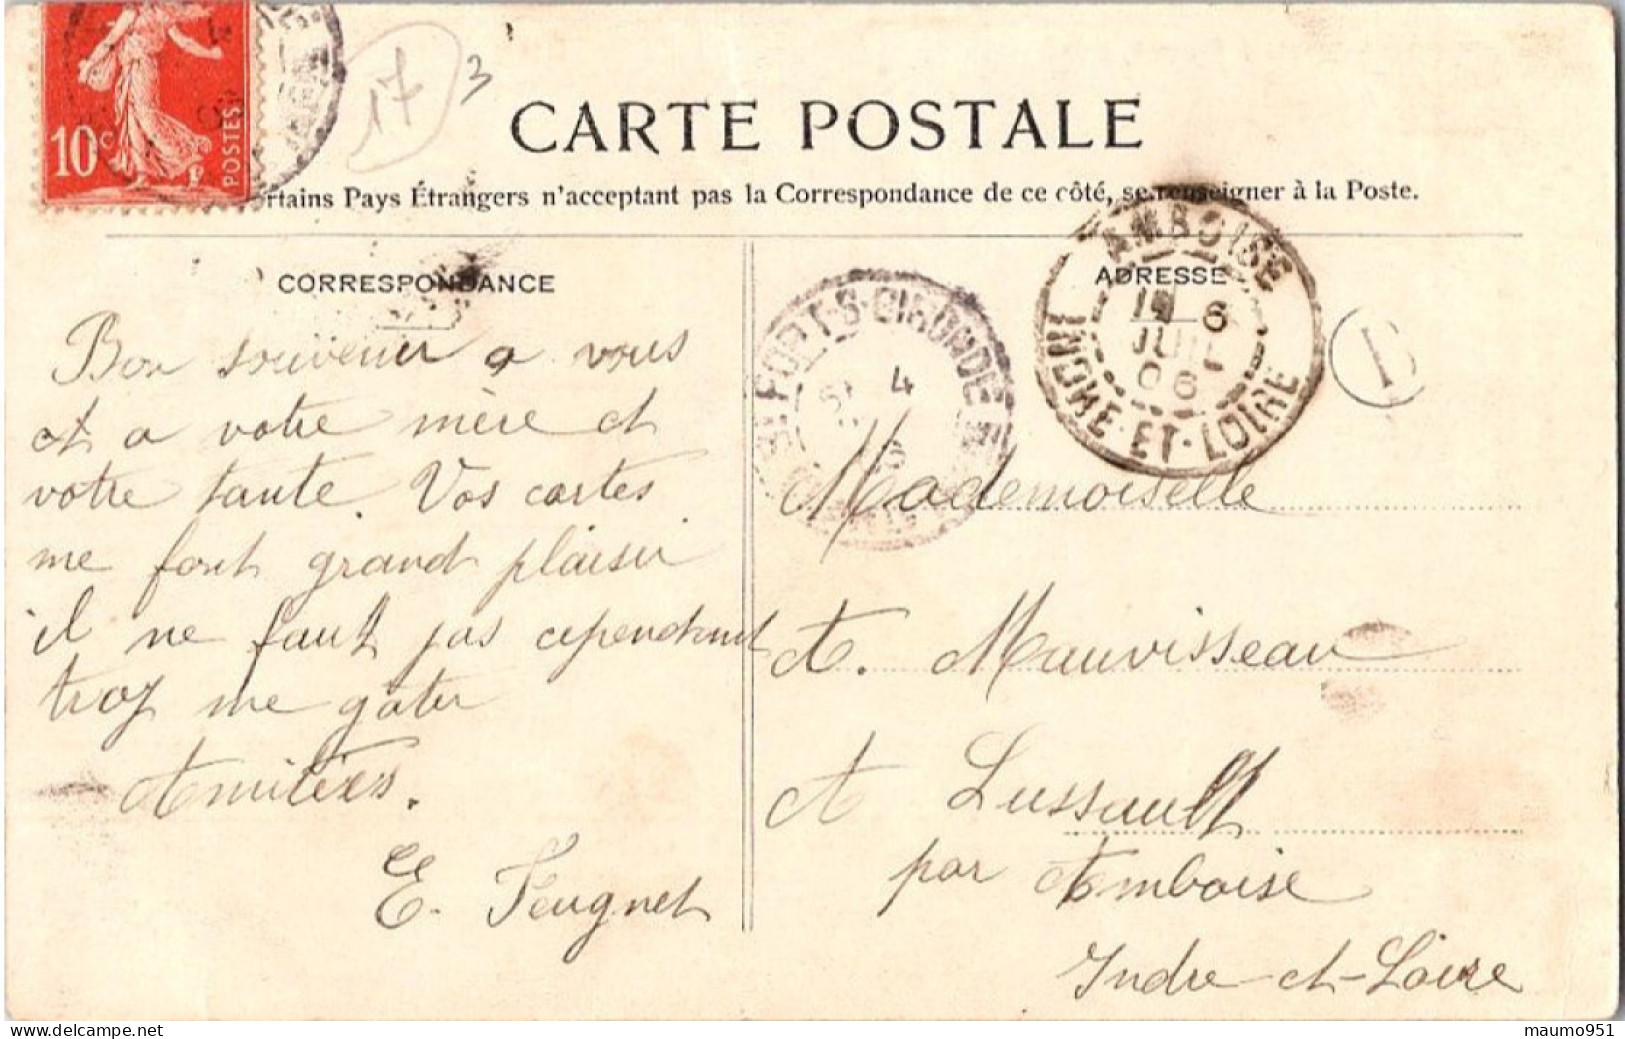 10c
POSTES
17
3
CARTE POSTALE
rtains Pays Étrangers n'acceptant pas la Correspondance de ce côté, se renseigner à la Poste.
CORRESPONDANCE
Bon souvenir a vous
et a votre mère et
votre tante. Vos cartes
me font grand plaisir
il ne faut pas cependant
trop me gater
Amitiés.
E. Feugnet
ADRESSE
AMBOISE
19 6
JUIL
06
INDRE-ET-LOIRE
FORT-S-GIRONDE
4
Mademoiselle
A. Mauvisseau
A Lussault
par Amboise
Indre-et-Loire
maumo951